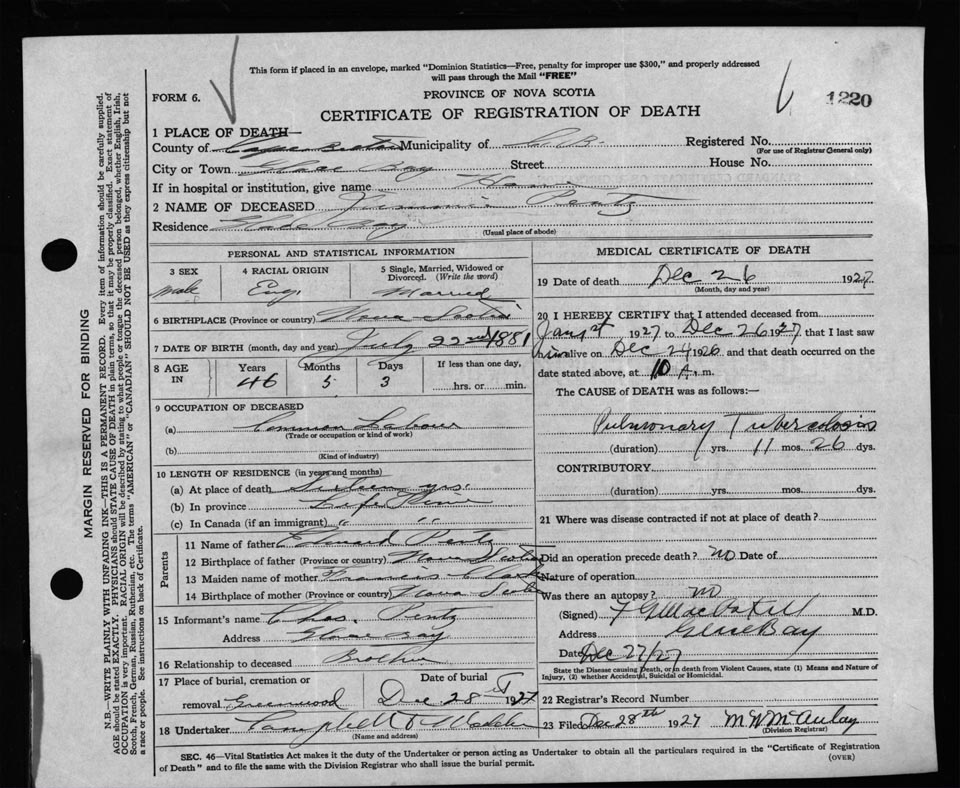 This form if placed in an envelope, marked "Dominion Statistics—Free, penalty for improper use $300," and properly addressed
will pass through the Mail "FREE"
FORM 6.
PROVINCE OF NOVA SCOTIA
1220
CERTIFICATE OF REGISTRATION OF DEATH
1 PLACE OF DEATH—
County of Cape Breton Municipality of C.B. Registered No.
(For use of Registrar General only)
City or Town Glace Bay Street House No.
If in hospital or institution, give name Home
2 NAME OF DECEASED Pentz
Residence Glace Bay
(Usual place of abode)
PERSONAL AND STATISTICAL INFORMATION
3 SEX 4 RACIAL ORIGIN 5 Single, Married, Widowed or Divorced. (Write the word)
Male Eng. Married
6 BIRTHPLACE (Province or country) Nova Scotia
7 DATE OF BIRTH (month, day and year) July 22nd 1881
8 AGE IN Years Months Days If less than one day,
46 5 3 hrs. or min.
9 OCCUPATION OF DECEASED
(a) Common Labour
(Trade or occupation or kind of work)
(b)
(Kind of industry)
10 LENGTH OF RESIDENCE (in years and months)
(a) At place of death yrs.
(b) In province Life Time
(c) In Canada (if an immigrant) " "
Parents
11 Name of father Edward Pentz
12 Birthplace of father (Province or country) Nova Scotia
13 Maiden name of mother Francis Clark
14 Birthplace of mother (Province or country) Nova Scotia
15 Informant's name Chas. Pentz
Address Glace Bay
16 Relationship to deceased Brother
17 Place of burial, cremation or removal Greenwood
Date of burial
Dec 28 1927
18 Undertaker Campbell
(Name and address)
MEDICAL CERTIFICATE OF DEATH
19 Date of death Dec 26 1927
(Month, day and year)
20 I HEREBY CERTIFY that I attended deceased from
Jan 1st 1927 to Dec 26 1927 that I last saw
him alive on Dec 24 1926 and that death occurred on the
date stated above, at 10 A. m.
The CAUSE of DEATH was as follows:—
Pulmonary Tuberculosis
(duration) yrs. 11 mos. 26 dys.
CONTRIBUTORY
(duration) yrs. mos. dys.
21 Where was disease contracted if not at place of death?
Did an operation precede death? no Date of
Nature of operation
Was there an autopsy? no
(Signed) M.D.
Address Glace Bay
Date Dec 27/27
State the Disease causing Death, or in death from Violent Causes, state (1) Means and Nature of
Injury, (2) whether Accidental, Suicidal or Homicidal.
22 Registrar's Record Number
23 Filed Dec 28th 1927 McAulay
(Division Registrar)
SEC. 46—Vital Statistics Act makes it the duty of the Undertaker or person acting as Undertaker to obtain all the particulars required in the "Certificate of Registration
of Death" and to file the same with the Division Registrar who shall issue the burial permit.
(OVER)
MARGIN RESERVED FOR BINDING
N.B.—WRITE PLAINLY WITH UNFADING INK—THIS IS A PERMANENT RECORD. Every item of information should be carefully supplied.
AGE should be stated EXACTLY. PHYSICIANS should STATE CAUSE OF DEATH in plain terms, so that it may be properly classified. Exact statement of
OCCUPATION is very important. RACIAL ORIGIN will be described by stating to what people or tongue the deceased person belonged, whether English, Irish,
Scotch, French, German, Russian, Ruthenian, etc. The terms "AMERICAN" or "CANADIAN" SHOULD NOT BE USED as they express citizenship but not
a race or people. See instructions on back of Certificate.